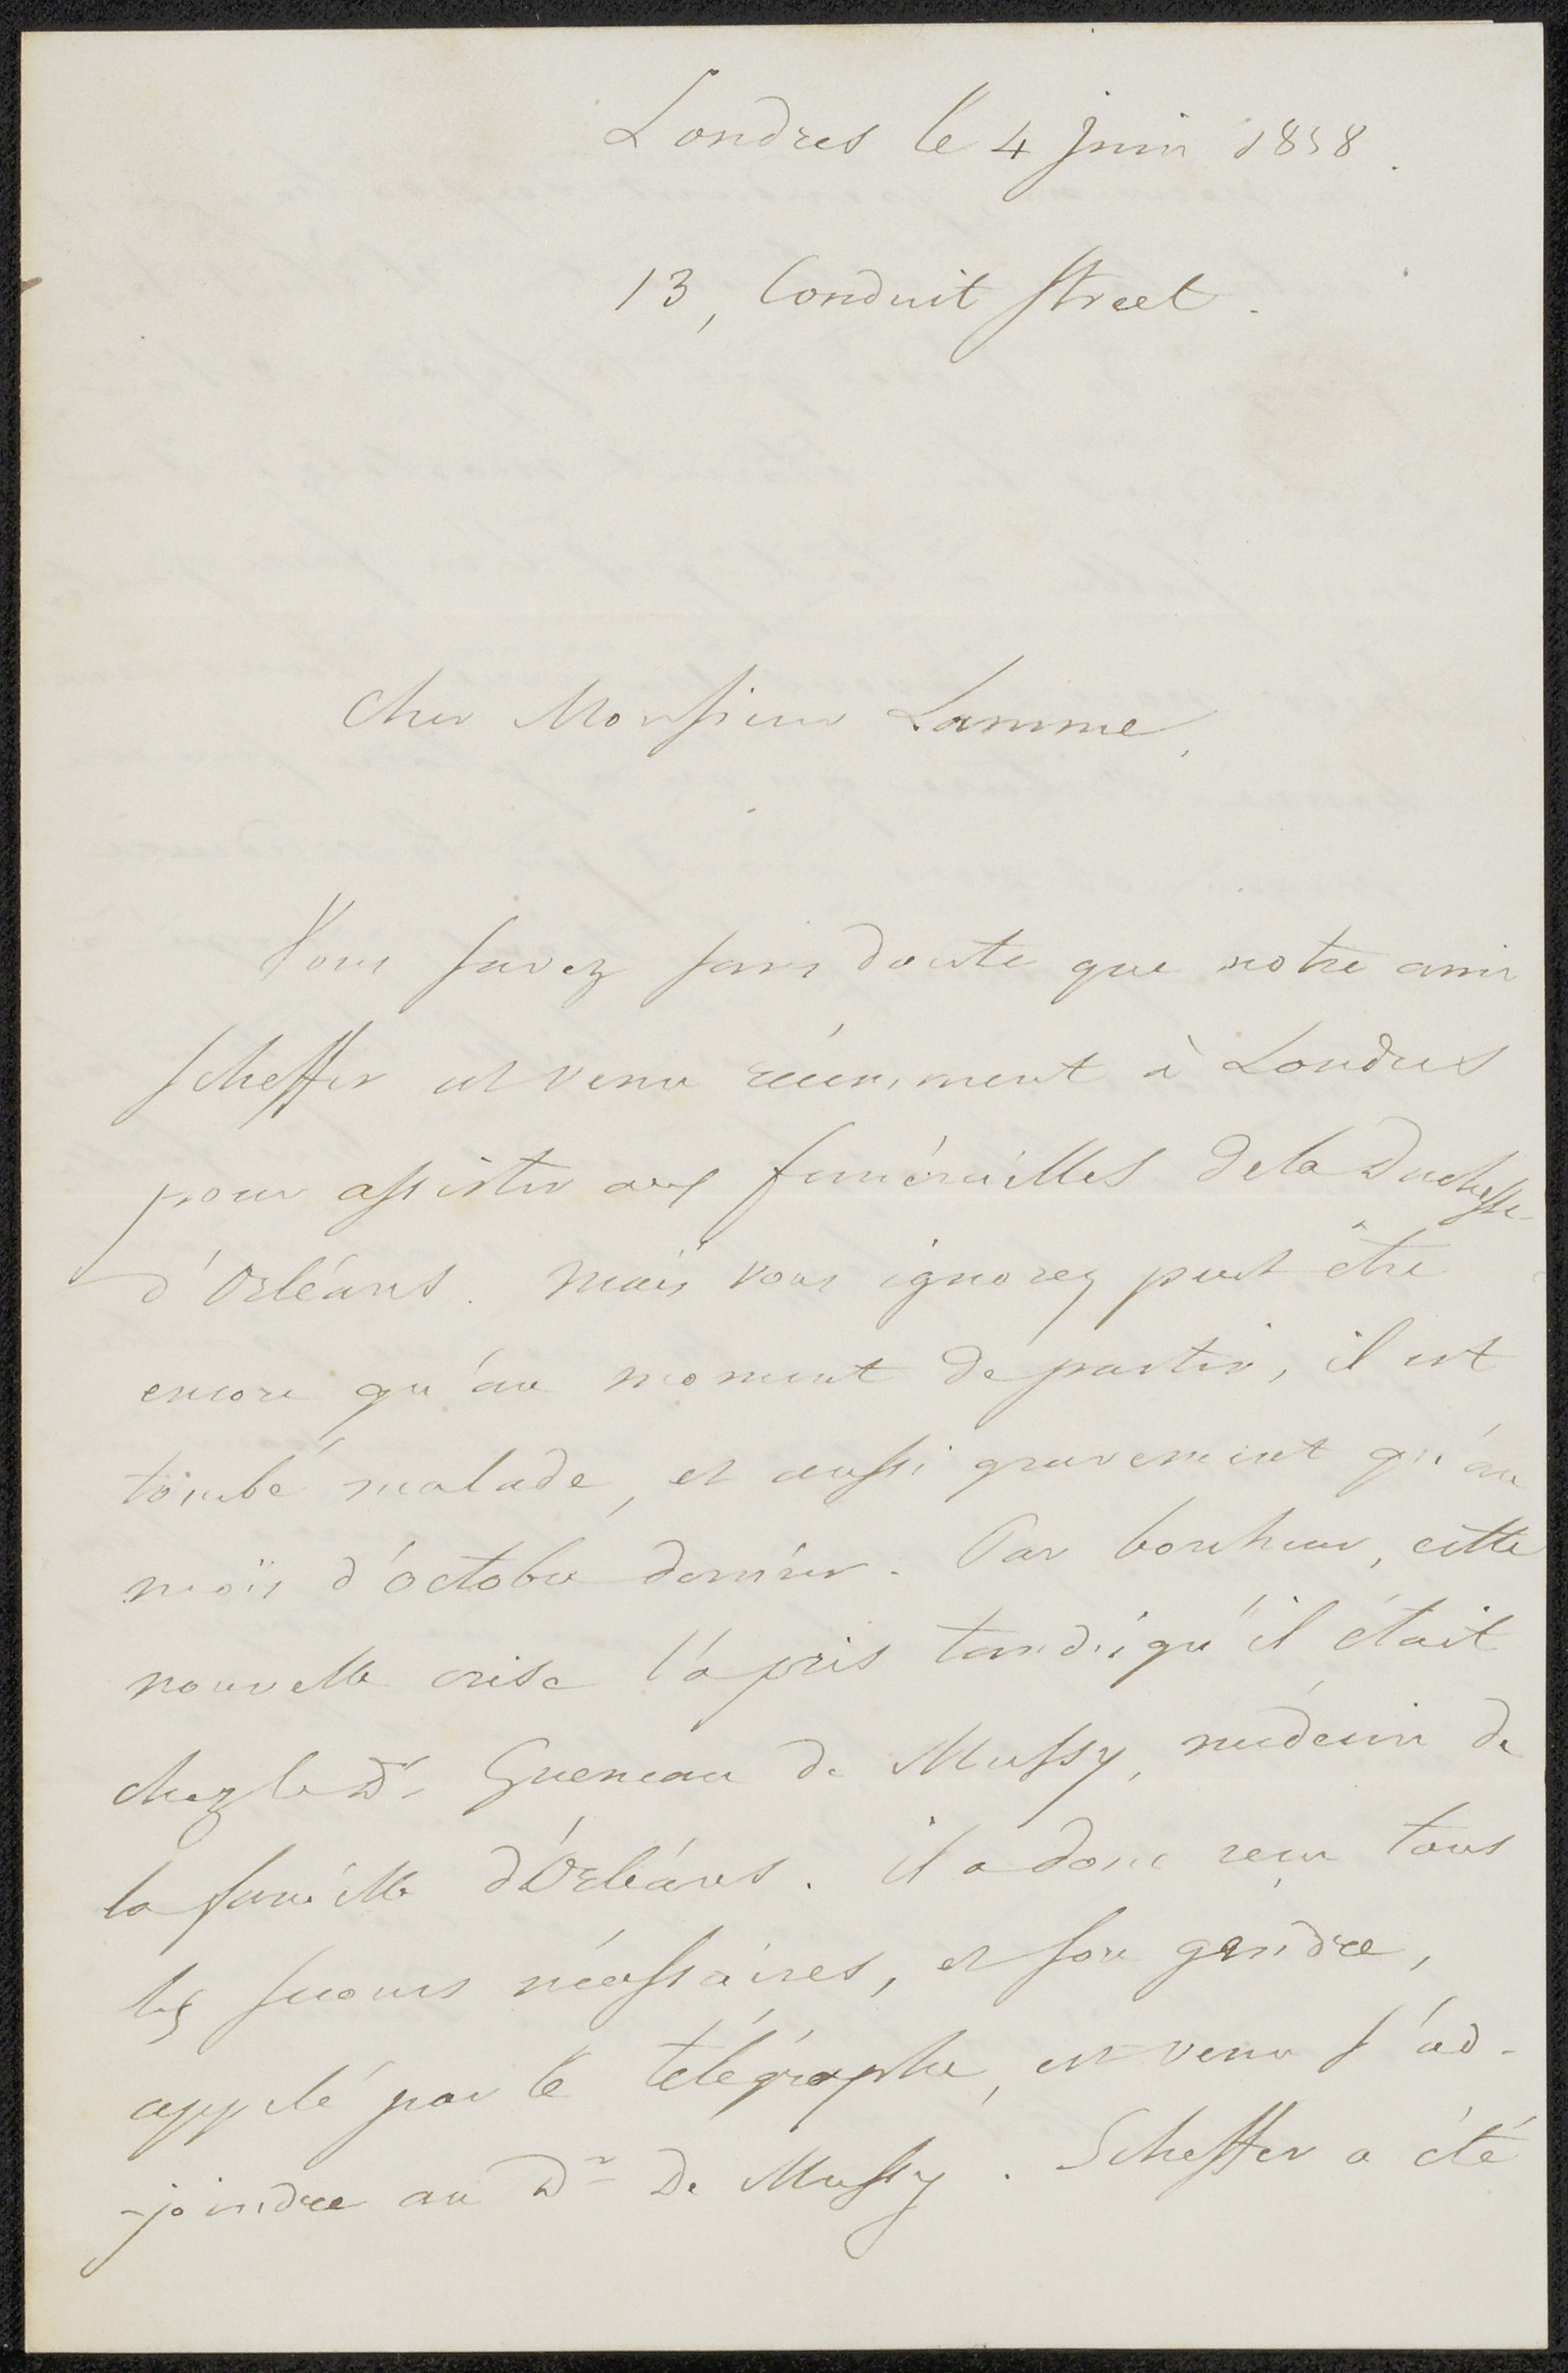 Londres le 4 juin 1858.
13, Conduit Street.
Cher Monsieur Lamme,
Vous savez sans doute que notre ami
Scheffer est venu récemment à Londres
pour assister aux funérailles de la Duchesse
d'Orléans. Mais vous ignorez peut être
encore qu'au moment de partir, il est
tombé malade, et aussi gravement qu'au
mois d'octobre dernier. Par bonheur, cette
nouvelle crise l'a pris tandis qu'il était
chez le Dr Gueneau de Mussy, médecin de
la famille d'Orléans. il a donc reçu tous
les secours nécessaires, et son gendre,
appelé par le télégraphe, est venu s'ad-
-joindre au Dr de Mussy. Scheffer a été